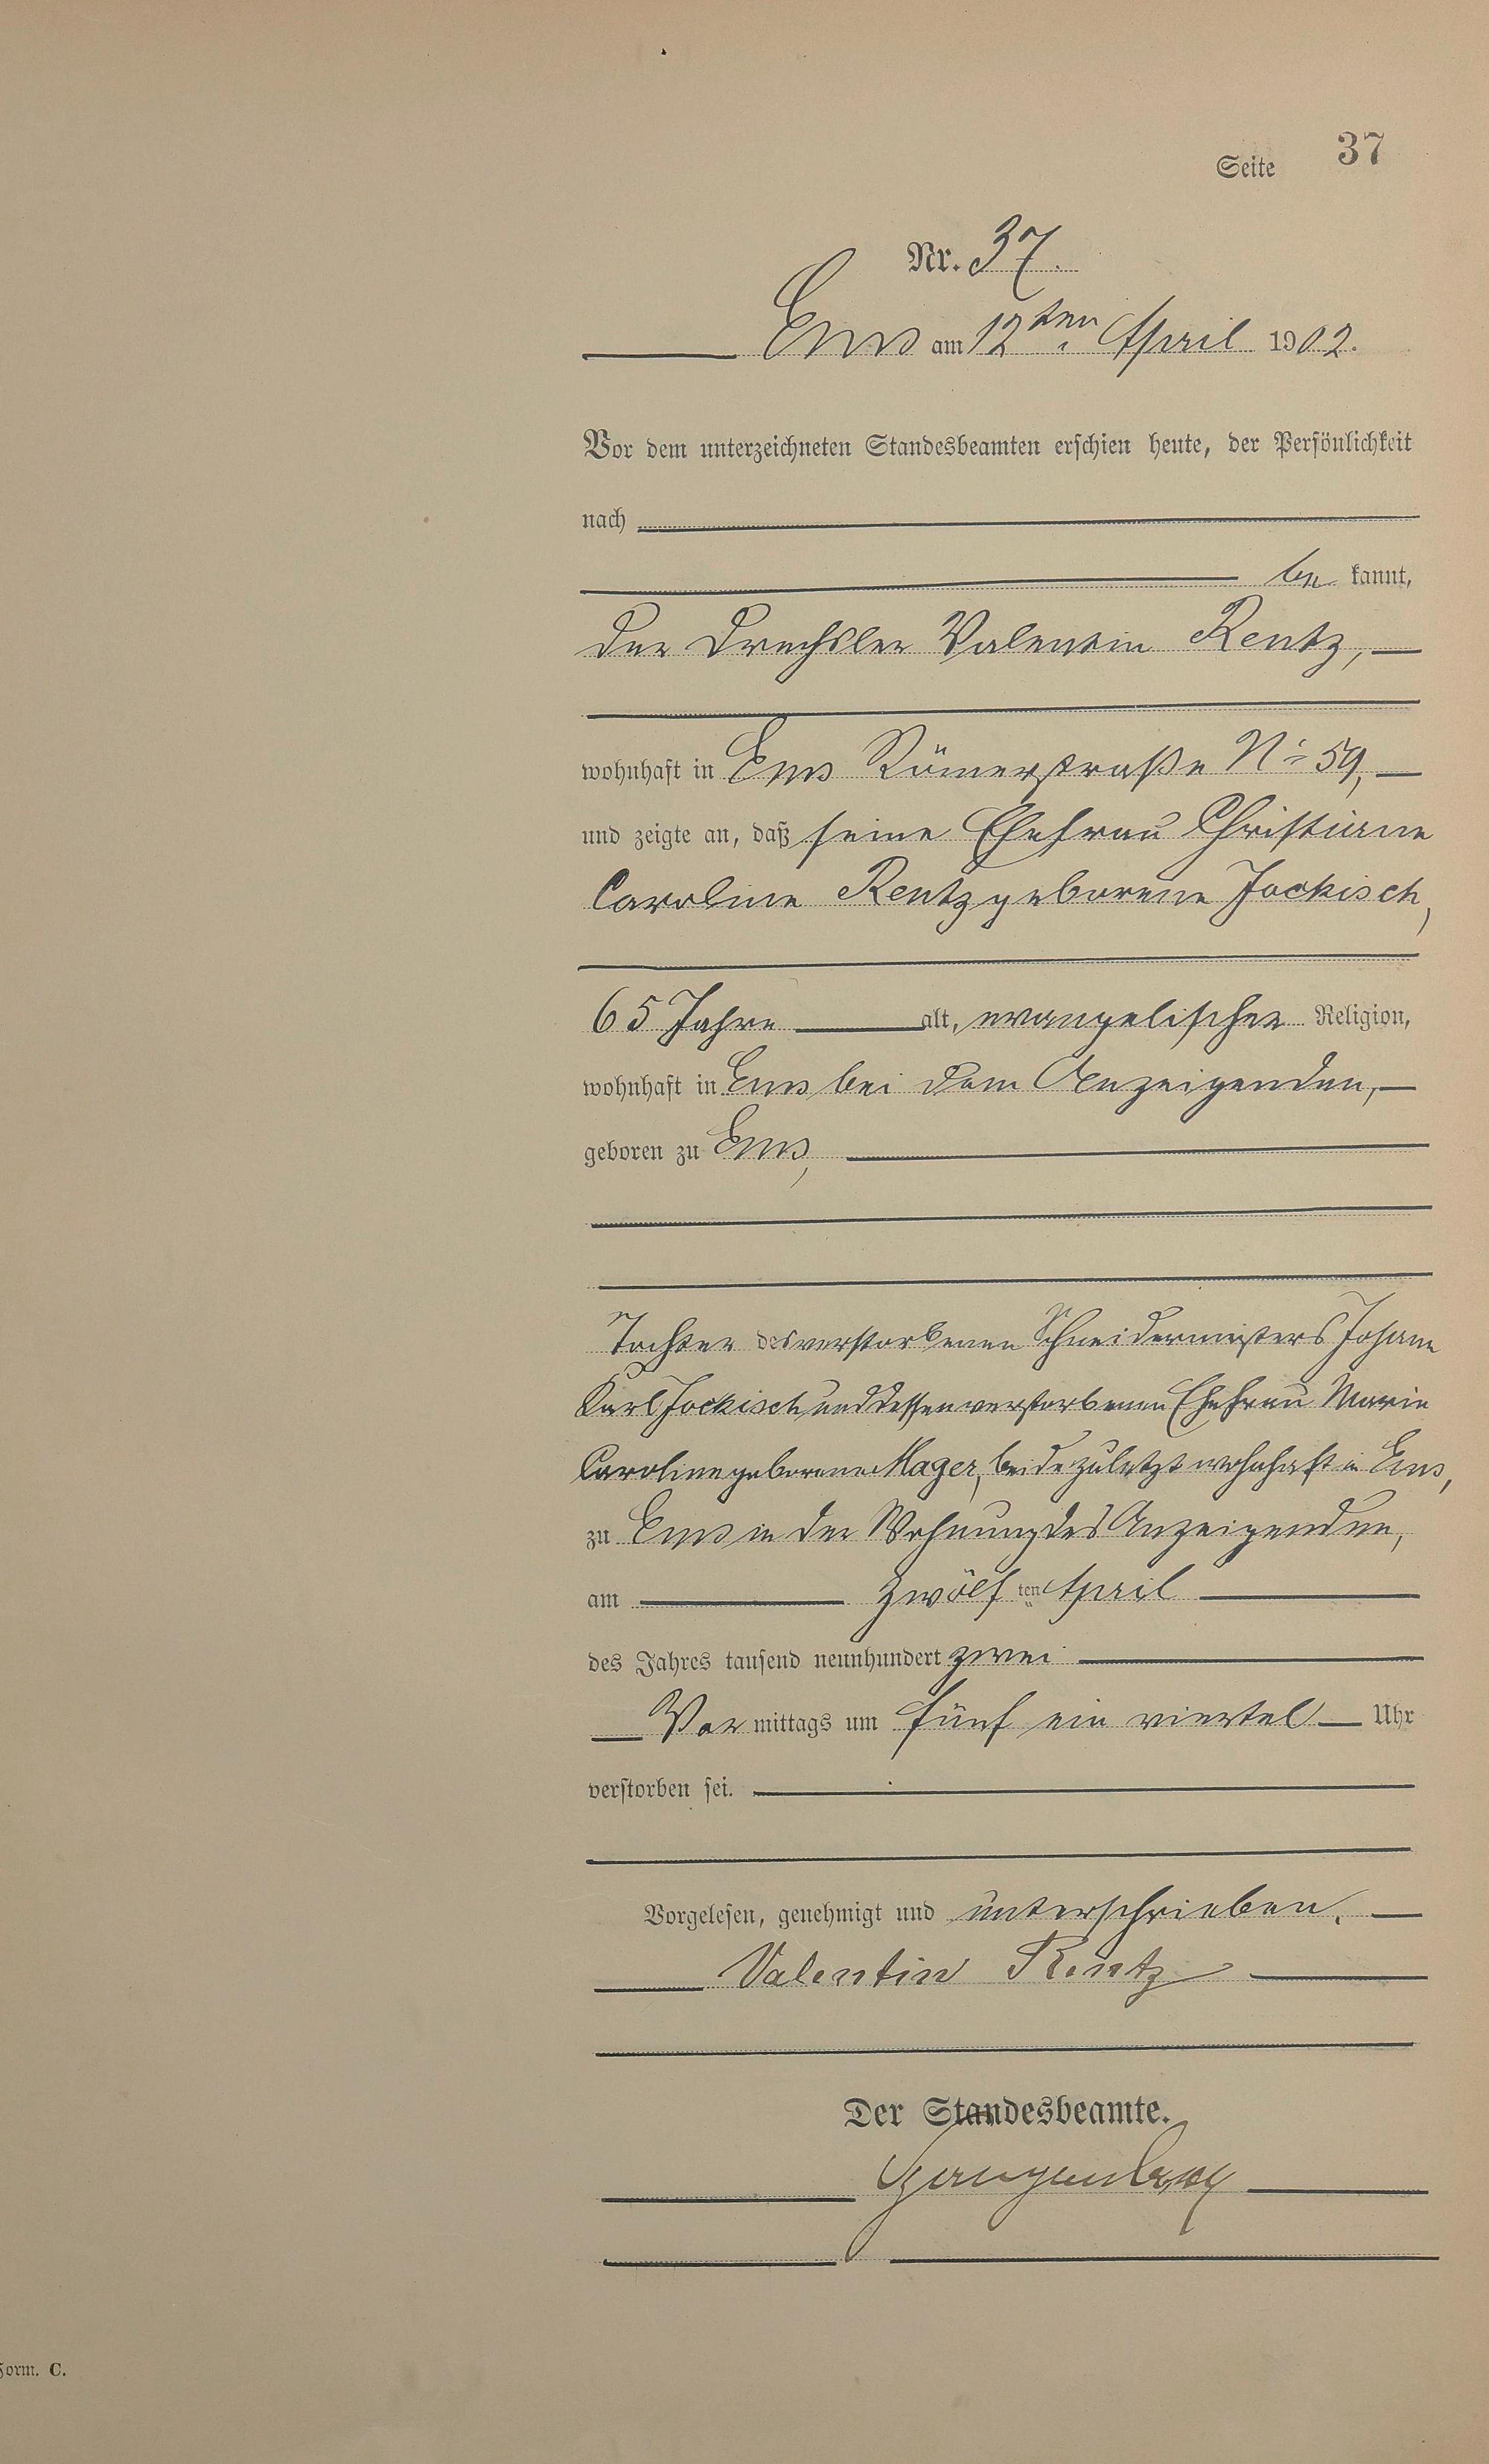 Seite 37
Nr. 37.
Ems am 12ten April 1902.
Vor dem unterzeichneten Standesbeamten erschien heute, der Persönlichkeit
nach
be kannt,
der Drechsler Valentin Rentz,
wohnhaft in Ems Römerstraße No 59,
und zeigte an, daß seine Ehefrau Christiane
Caroline Rentz geborene Jockisch,
65 Jahre alt, evangelischer Religion,
wohnhaft in Ems bei dem Anzeigenden,
geboren zu Ems,
Tochter des verstorbenen Schneidermeisters Johann
Karl Jockisch und dessen verstorbenen Ehefrau Marie
Caroline geborene Mager, beide zuletzt wohnhaft in Ems,
zu Ems in der Wohnung des Anzeigenden,
am zwölf ten April
des Jahres tausend neunhundert zwei
Vor mittags um fünf ein viertel Uhr
verstorben sei.
Vorgelesen, genehmigt und unterschrieben.
Valentin Rentz
Der Standesbeamte.
Form. C.